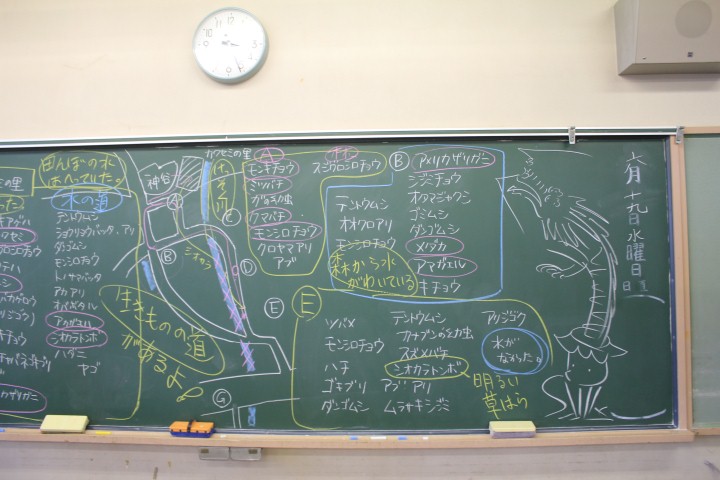 田んぼの水
はへっていた。
の里
水の道
テントウムシ
ショウリョウバッタ、アリ
ダンゴムシ
モンシロチョウ
トノサマバッタ
クロアリ
アマガエル
シオカラトンボ
ハタニ
ヤゴ
カワセミの里
神谷
A
B
C
D
E
G
シオカラ
生きものの道
があるよ
A
モンキチョウ
ミツバチ
ガの幼虫
クマバチ
モンシロチョウ
クロヤマアリ
アブ
スジグロシロチョウ
テントウムシ
オオクロアリ
モンシロチョウ
森から水
がわいている
B
アメリカザリガニ
シジミチョウ
オタマジャクシ
ゴミムシ
ダンゴムシ
メダカ
アマガエル
キチョウ
E
ツバメ
モンシロチョウ
ハチ
ゴキブリ
ダンゴムシ
テントウムシ
カナブンの幼虫
スズメバチ
シオカラトンボ
アブ アリ
ムラサキシジミ
アリジゴク
水が
なかった。
明るい
草はら
六月十九日水曜日
日直